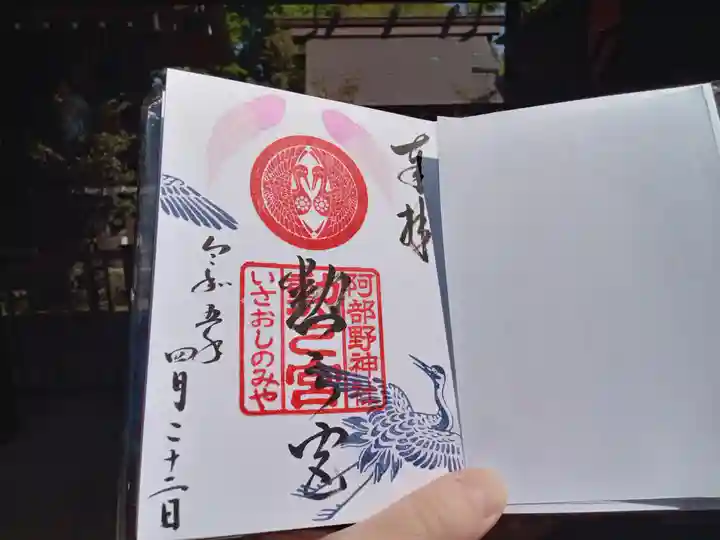 奉拝
阿部野神社
勲之宮
いさおしのみや
勲之宮
令和五年
四月二十二日